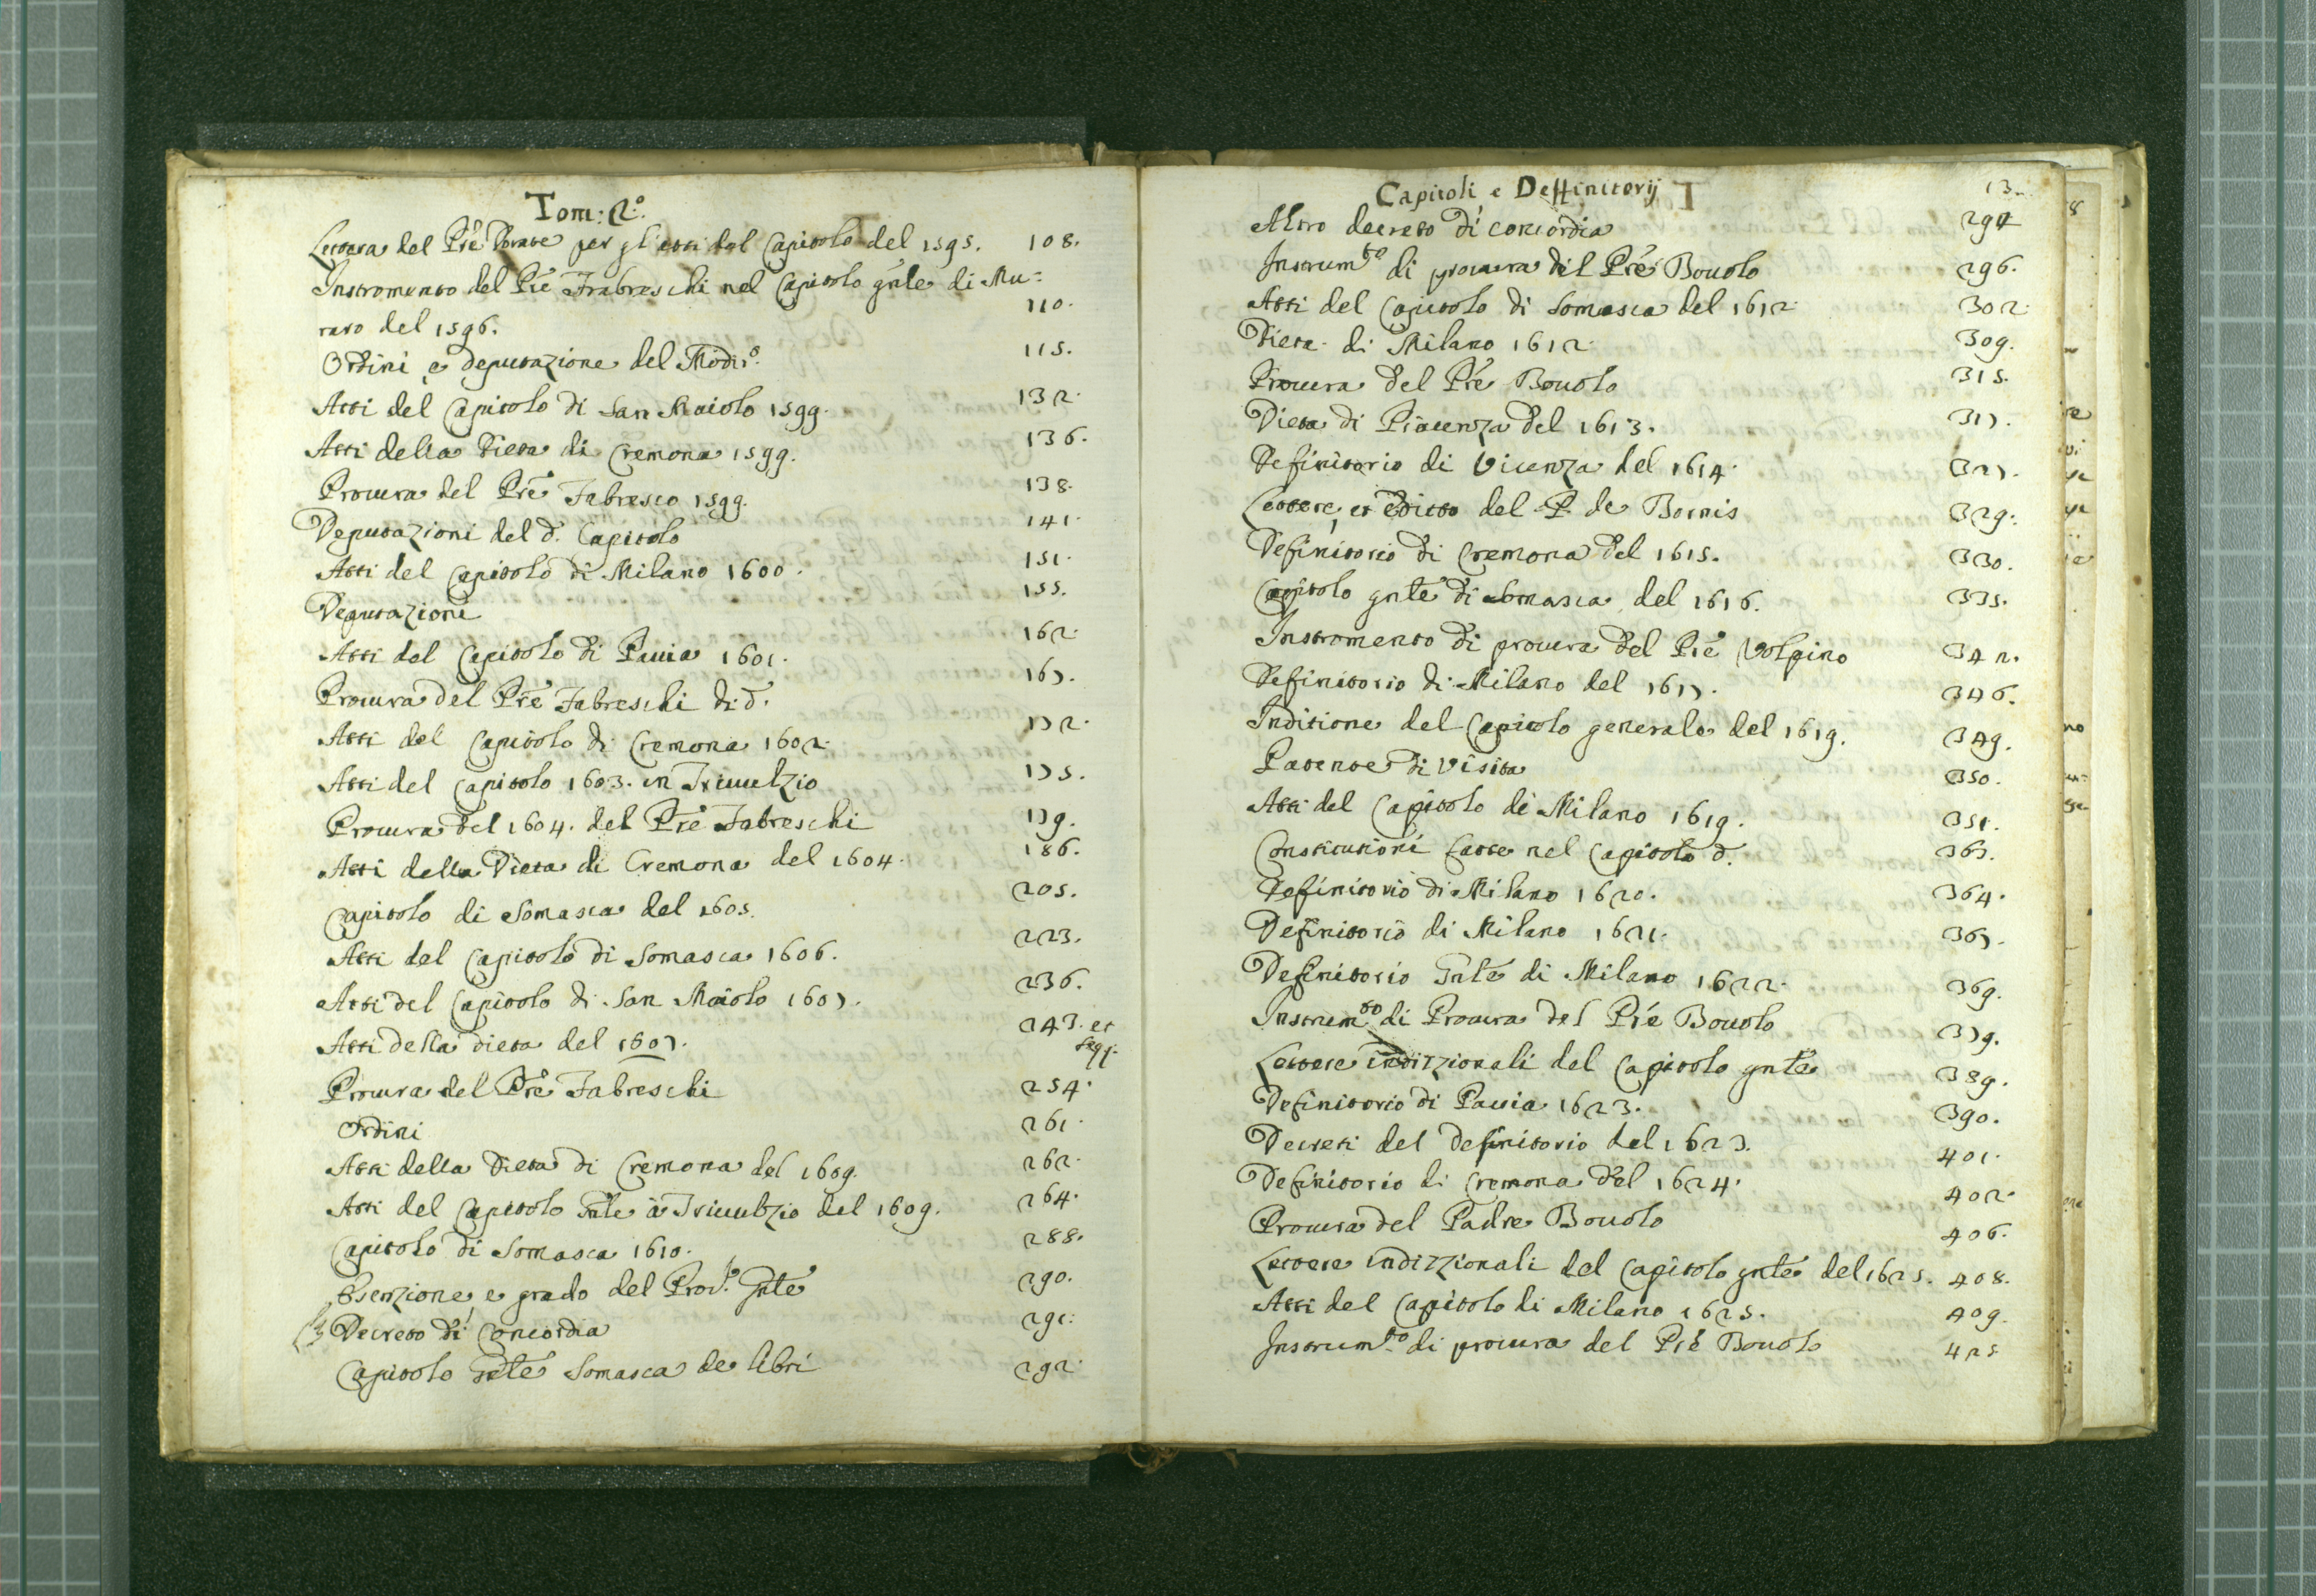 Tom: 2.º
Lettera del Prē Dorate per gl'atti del Capitolo del 1595. 108.
Instromento del Prē Frabreschi nel Capitolo gn̄le di Mu=
raro del 1596. 110.
Ordini e deputazione del Mōdir.º 115.
Atti del Capitolo di San Maiolo 1599. 132.
Atti della Dieta di Cremona 1599. 136.
Procura del Prē Fabresco 1599. 138.
Deputazioni del d.º Capitolo 141.
Atti del Capitolo di Milano 1600. 151.
Deputazioni 155.
Atti del Capitolo di Pauia 1601. 162.
Procura del Prē Fabreschi di d.º 167.
Atti del Capitolo di Cremona 1602. 172.
Atti del Capitolo 1603. in Triuulzio 175.
Procura del 1604. del Prē Fabreschi 179.
Atti della Dieta di Cremona del 1604. 186.
Capitolo di Somasca del 1605. 205.
Atti del Capitolo di Somasca 1606. 223.
Atti del Capitolo di San Maiolo 1607. 236.
Atti della dieta del 1607. 243. et segg.
Procura del Prē Fabreschi 254.
Ordini 261.
Atti della Dieta di Cremona del 1609. 262.
Atti del Capitolo Gn̄le à Triuulzio del 1609. 264.
Capitolo di Somasca 1610. 288.
Esenzione, e grado del Pro.r Gn̄le 290.
Decreto di Concordia 291.
Capitolo Gn̄le Somasca de libri 292.
Capitoli, e Deffinitorij 13
Altro decreto di concordia 294
Instrum.to di procura del Prē Bouolo 296.
Atti del Capitolo di Somasca del 1612. 302.
Dieta di Milano 1612. 309.
Procura del Prē Bouolo 315.
Dieta di Piacenza del 1613. 317.
Definitorio di Vicenza del 1614. 327.
Lettere, et Editto del P. de Bornis 329.
Definitorio di Cremona del 1615. 330.
Capitolo gn̄le di Somasca del 1616. 335.
Instromento di procura del Prē Volpino 342.
Definitorio di Milano del 1617. 346.
Inditione del Capitolo generale del 1619. 349.
Patente di Visita 350.
Atti del Capitolo di Milano 1619. 351.
Constitutioni fatte nel Capitolo d.º 363.
Definitorio di Milano 1620. 364.
Definitorio di Milano 1621. 367.
Definitorio Gn̄le di Milano 1622. 369.
Instrum.to di Procura del Prē Bouolo 379.
Lettere indizzionali del Capitolo gn̄le 389.
Definitorio di Pauia 1623. 390.
Decreti del definitorio del 1623. 401.
Definitorio di Cremona del 1624. 402.
Procura del Padre Bouolo 406.
Lettere indizzionali del Capitolo gn̄le del 1625. 408.
Atti del Capitolo di Milano 1625. 409.
Instrum.to di procura del Prē Bouolo 425